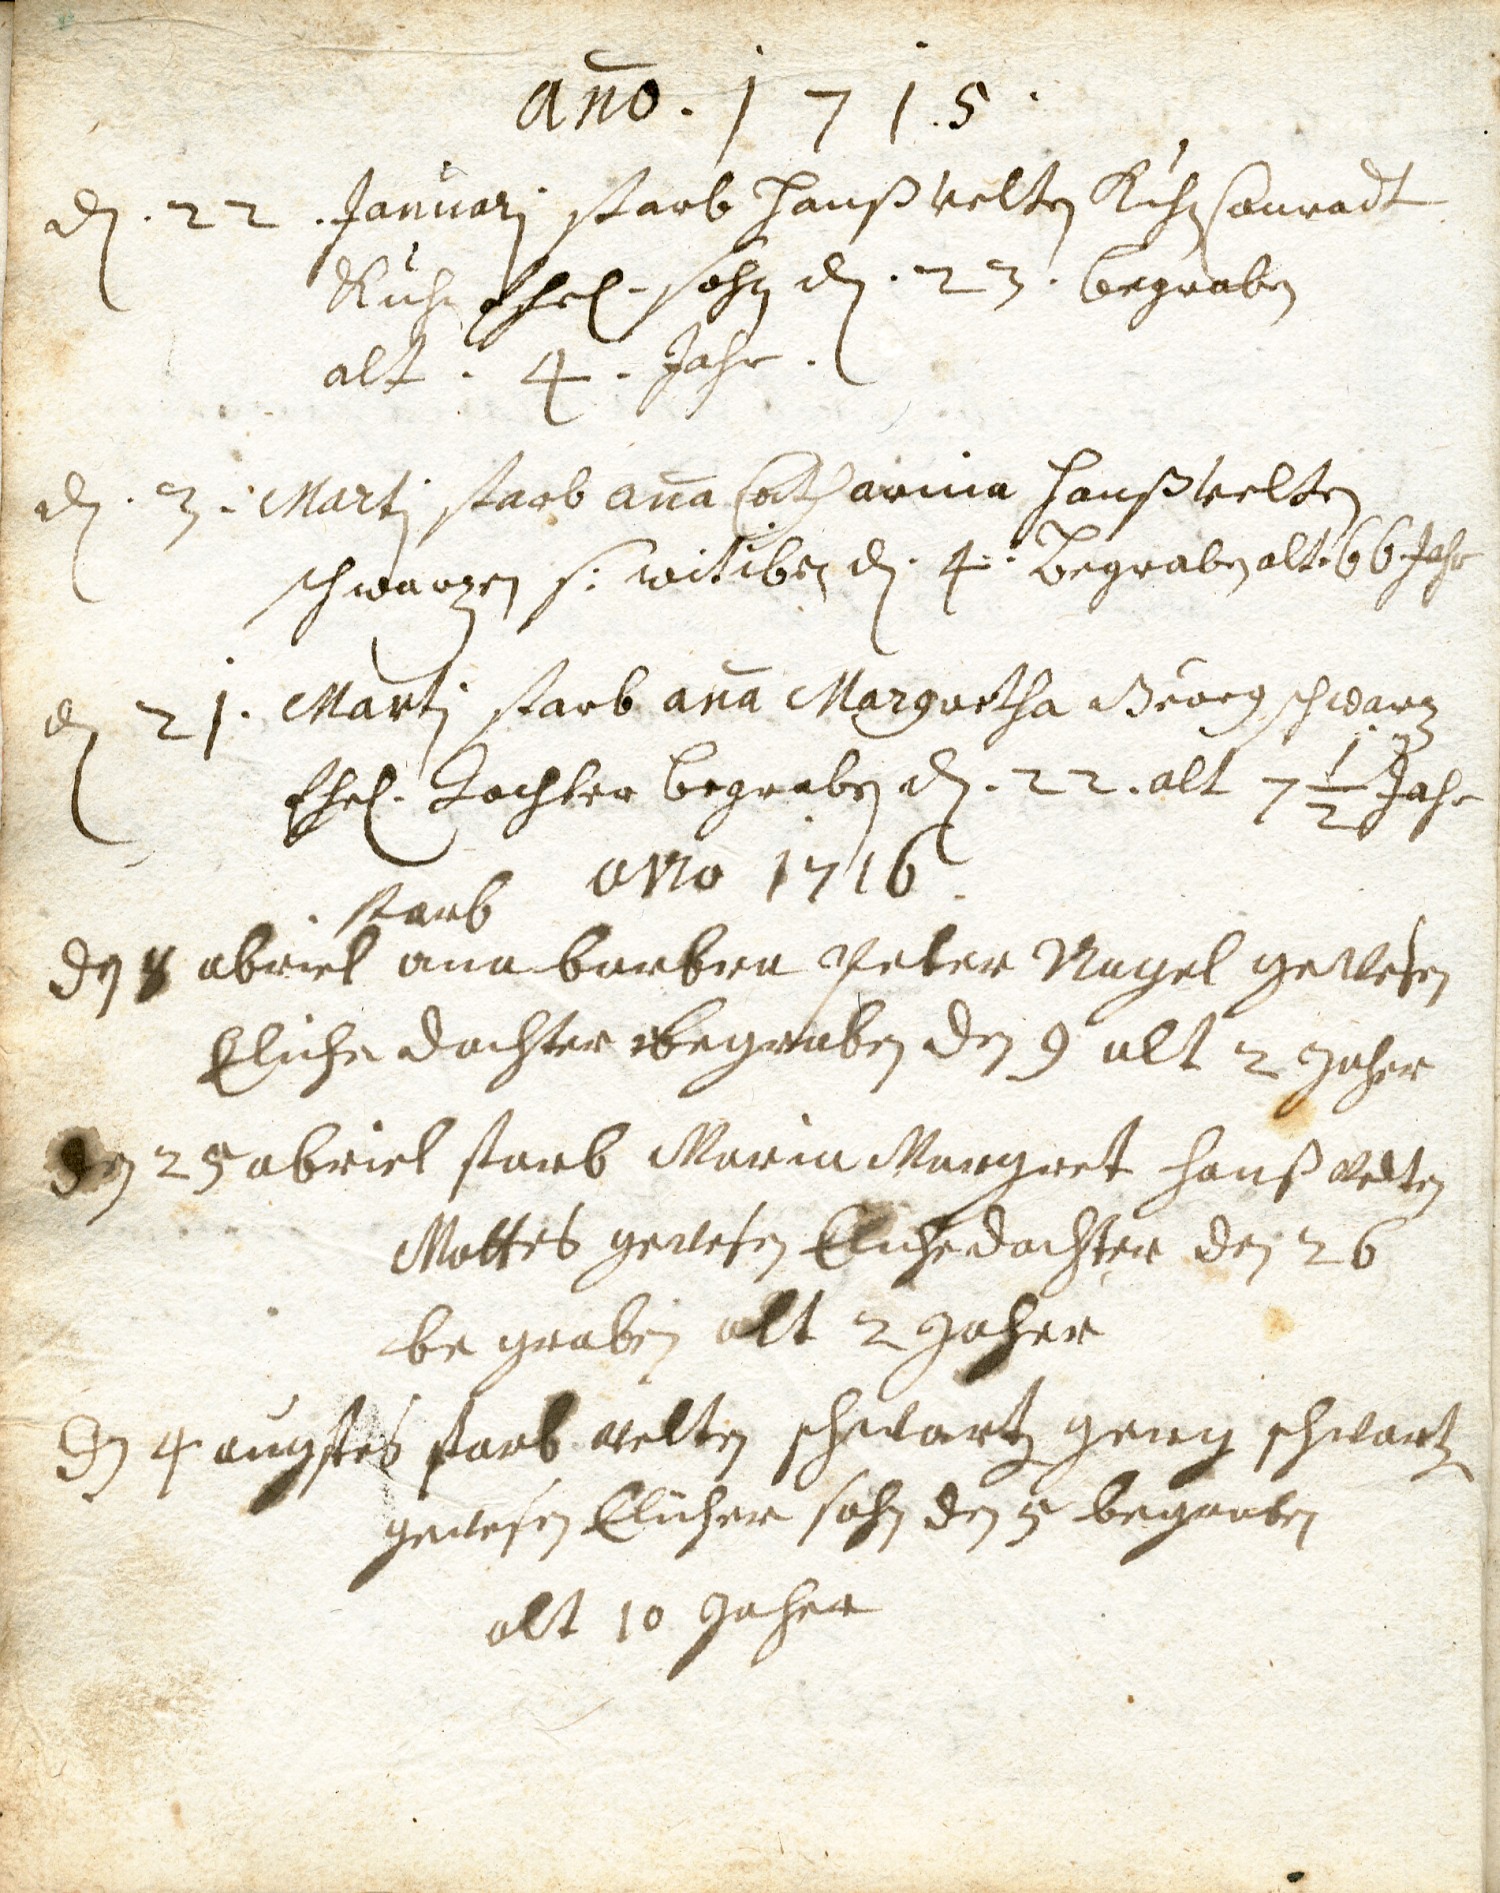 año. 1 7 1. 5.
dn. 22. Januarj starb Hanß velten Kuhn Conradt
Kuhn Ehel. sohn dn. 23. begraben
alt. 4. Jahr.
dn. 3. Martj starb aña Catharina Hanß velten
schwarzen s. witiben dn. 4. Begraben alt. 66 Jahr
dn 21. Martj starb aña Margretha Georg schwarz
Ehel. Tochter begraben dn. 22. alt 7 1/2 Jahr
ano 1716.
starb
den 8 abriel ana barbra Peter Nagel gewesen
Eliche dochter begraben den 9 alt 2 Jaher
den 25 abriel starb Maria Margret hanß velten
Mattes gewesen Eliche dochter den 26
be graben alt 2 Jaher
den 4 augstes starb velten schwartz georg schwartz
gewesen Elicher sohn den 5 begraben
alt 10 Jaher